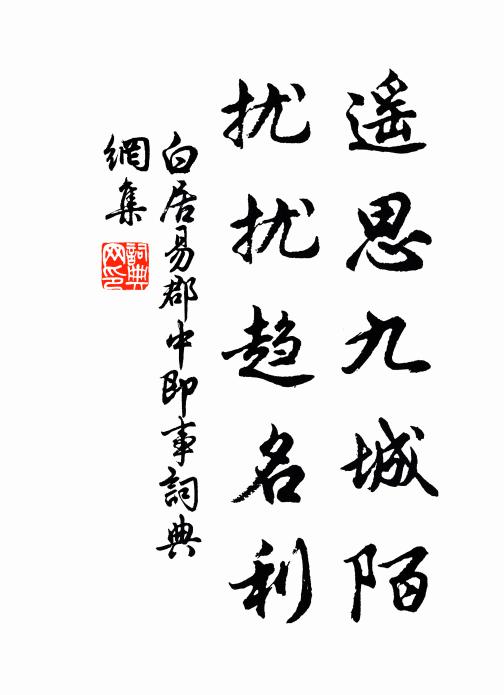 遥思九城陌
扰扰趋名利
白居易郡中即事詞典
網集
詞典
网印